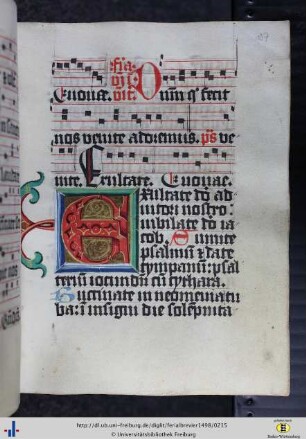 feria
vj
Euouae. vit. Dnm qͥ fecit
nos venite adoremus. ps Ve
nite. Exultate. Euouae.
EXultate deo ad
iutori nostro:
iubilate deo ia
cob. Sumite
psalmum & date
tympanum: psal
terium iocundum cum cythara.
Buccinate in neomenia tu
ba: in insigni die solempnita
http://dl.ub.uni-freiburg.de/diglit/ferialbrevier1498/0215
© Universitätsbibliothek Freiburg